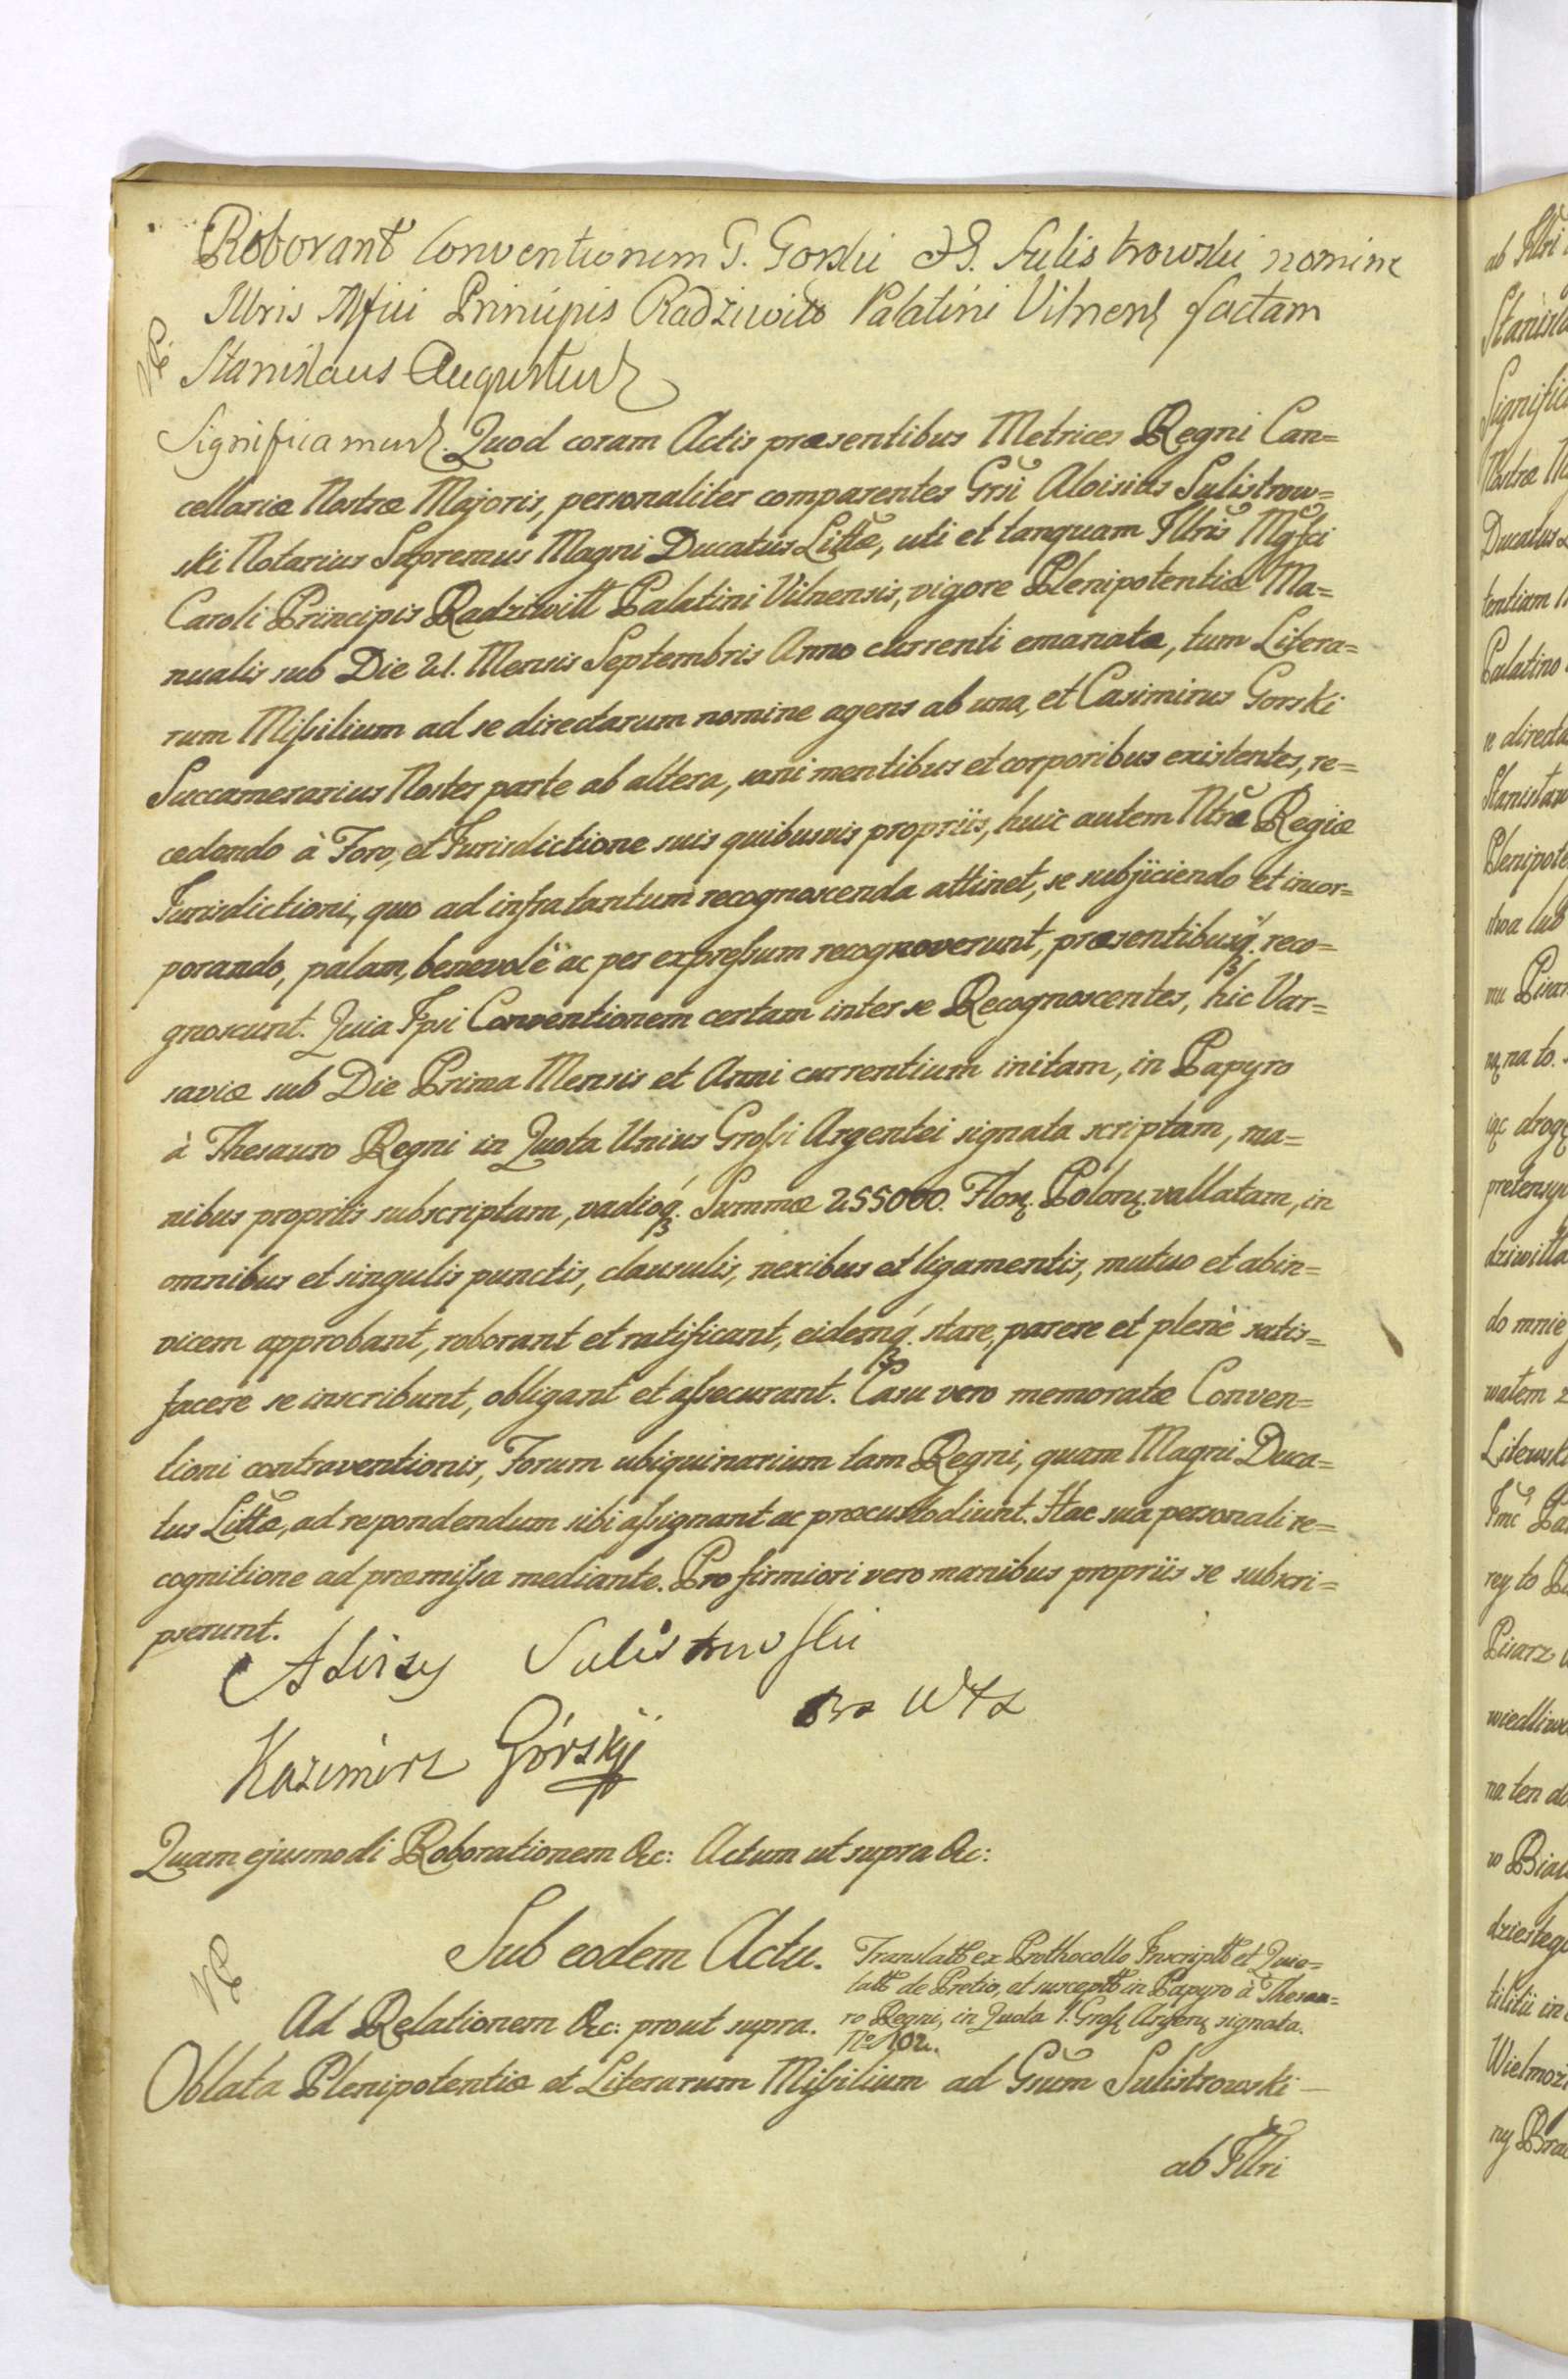 Roborant Conventionem G. Gorski & G. Sulistrowski nomine
Illris Mfici Principis Radziwiłł Palatini Vilnens factam
Stanislaus Augustus
Significamus. Quod coram Actis præsentibus Metrices Regni Can=
cellariæ Nostræ Majoris, personaliter comparentes Grsi Aloisius Sulistrow=
ski Notarius Supremus Magni Ducatus Littæ, uti et tanquam Illris Mgfci
Caroli Principis Radziwiłł Palatini Vilnensis, vigore Plenipotentiæ Ma=
nualis sub Die 21. Mensis Septembris Anno currenti emanatæ, tum Litera=
rum Missilium ad se directarum nomine agens ab una, et Casimirus Gorski
Succamerarius Noster parte ab altera, sani mentibus et corporibus existentes, re=
cedendo à Foro, et Jurisdictione suis quibusvis propriis, huic autem Ntræ Regiæ
Jurisdictioni, quo ad infra tantum recognoscenda attinet, se subjiciendo et incor=
porando, palam, benevolè ac per expressum recognoverunt, præsentibusq. reco=
gnoscunt. Quia Ipsi Conventionem certam inter se Recognoscentes, hic Var=
saviæ sub Die Prima Mensis et Anni currentium initam, in Papyro
à Thesauro Regni in Quota Unius Grossi Argentei signata scriptam, ma=
nibus propriis subscriptam, vadioq. Summæ 255000. Flor. Polon. vallatam, in
omnibus et singulis punctis, clausulis, nexibus et ligamentis, mutuo et abin=
vicem approbant, roborant et ratificant, eidemq. stare, parere et plenè satis=
facere se inscribunt, obligant et assecurant. Casu vero memoratæ Conven=
tioni contraventionis, Forum ubiquinarium tam Regni, quam Magni Duca=
tus Littæ, ad respondendum sibi assignant ac præcustodiunt. Hac sua personali re=
cognitione ad præmissa mediante. Pro firmiori vero manibus propriis se subscri=
pserunt.
Aloizy Sulistrowski
Kazimirz Górskij
Quam ejusmodi Roborationem &c: Actum ut supra &c:
Sub eodem Actu.
Translatt ex Prothocollo Inscriptt et Quie=
tatt de Pretio, et susceptt in Papyro à Thesau=
ro Regni, in Quota 1. Gross Argen signata.
No 102.
Ad Relationem &c: prout supra.
Oblata Plenipotentiæ et Literarum Missilium ad Gsum Sulistrowski
ab Illri